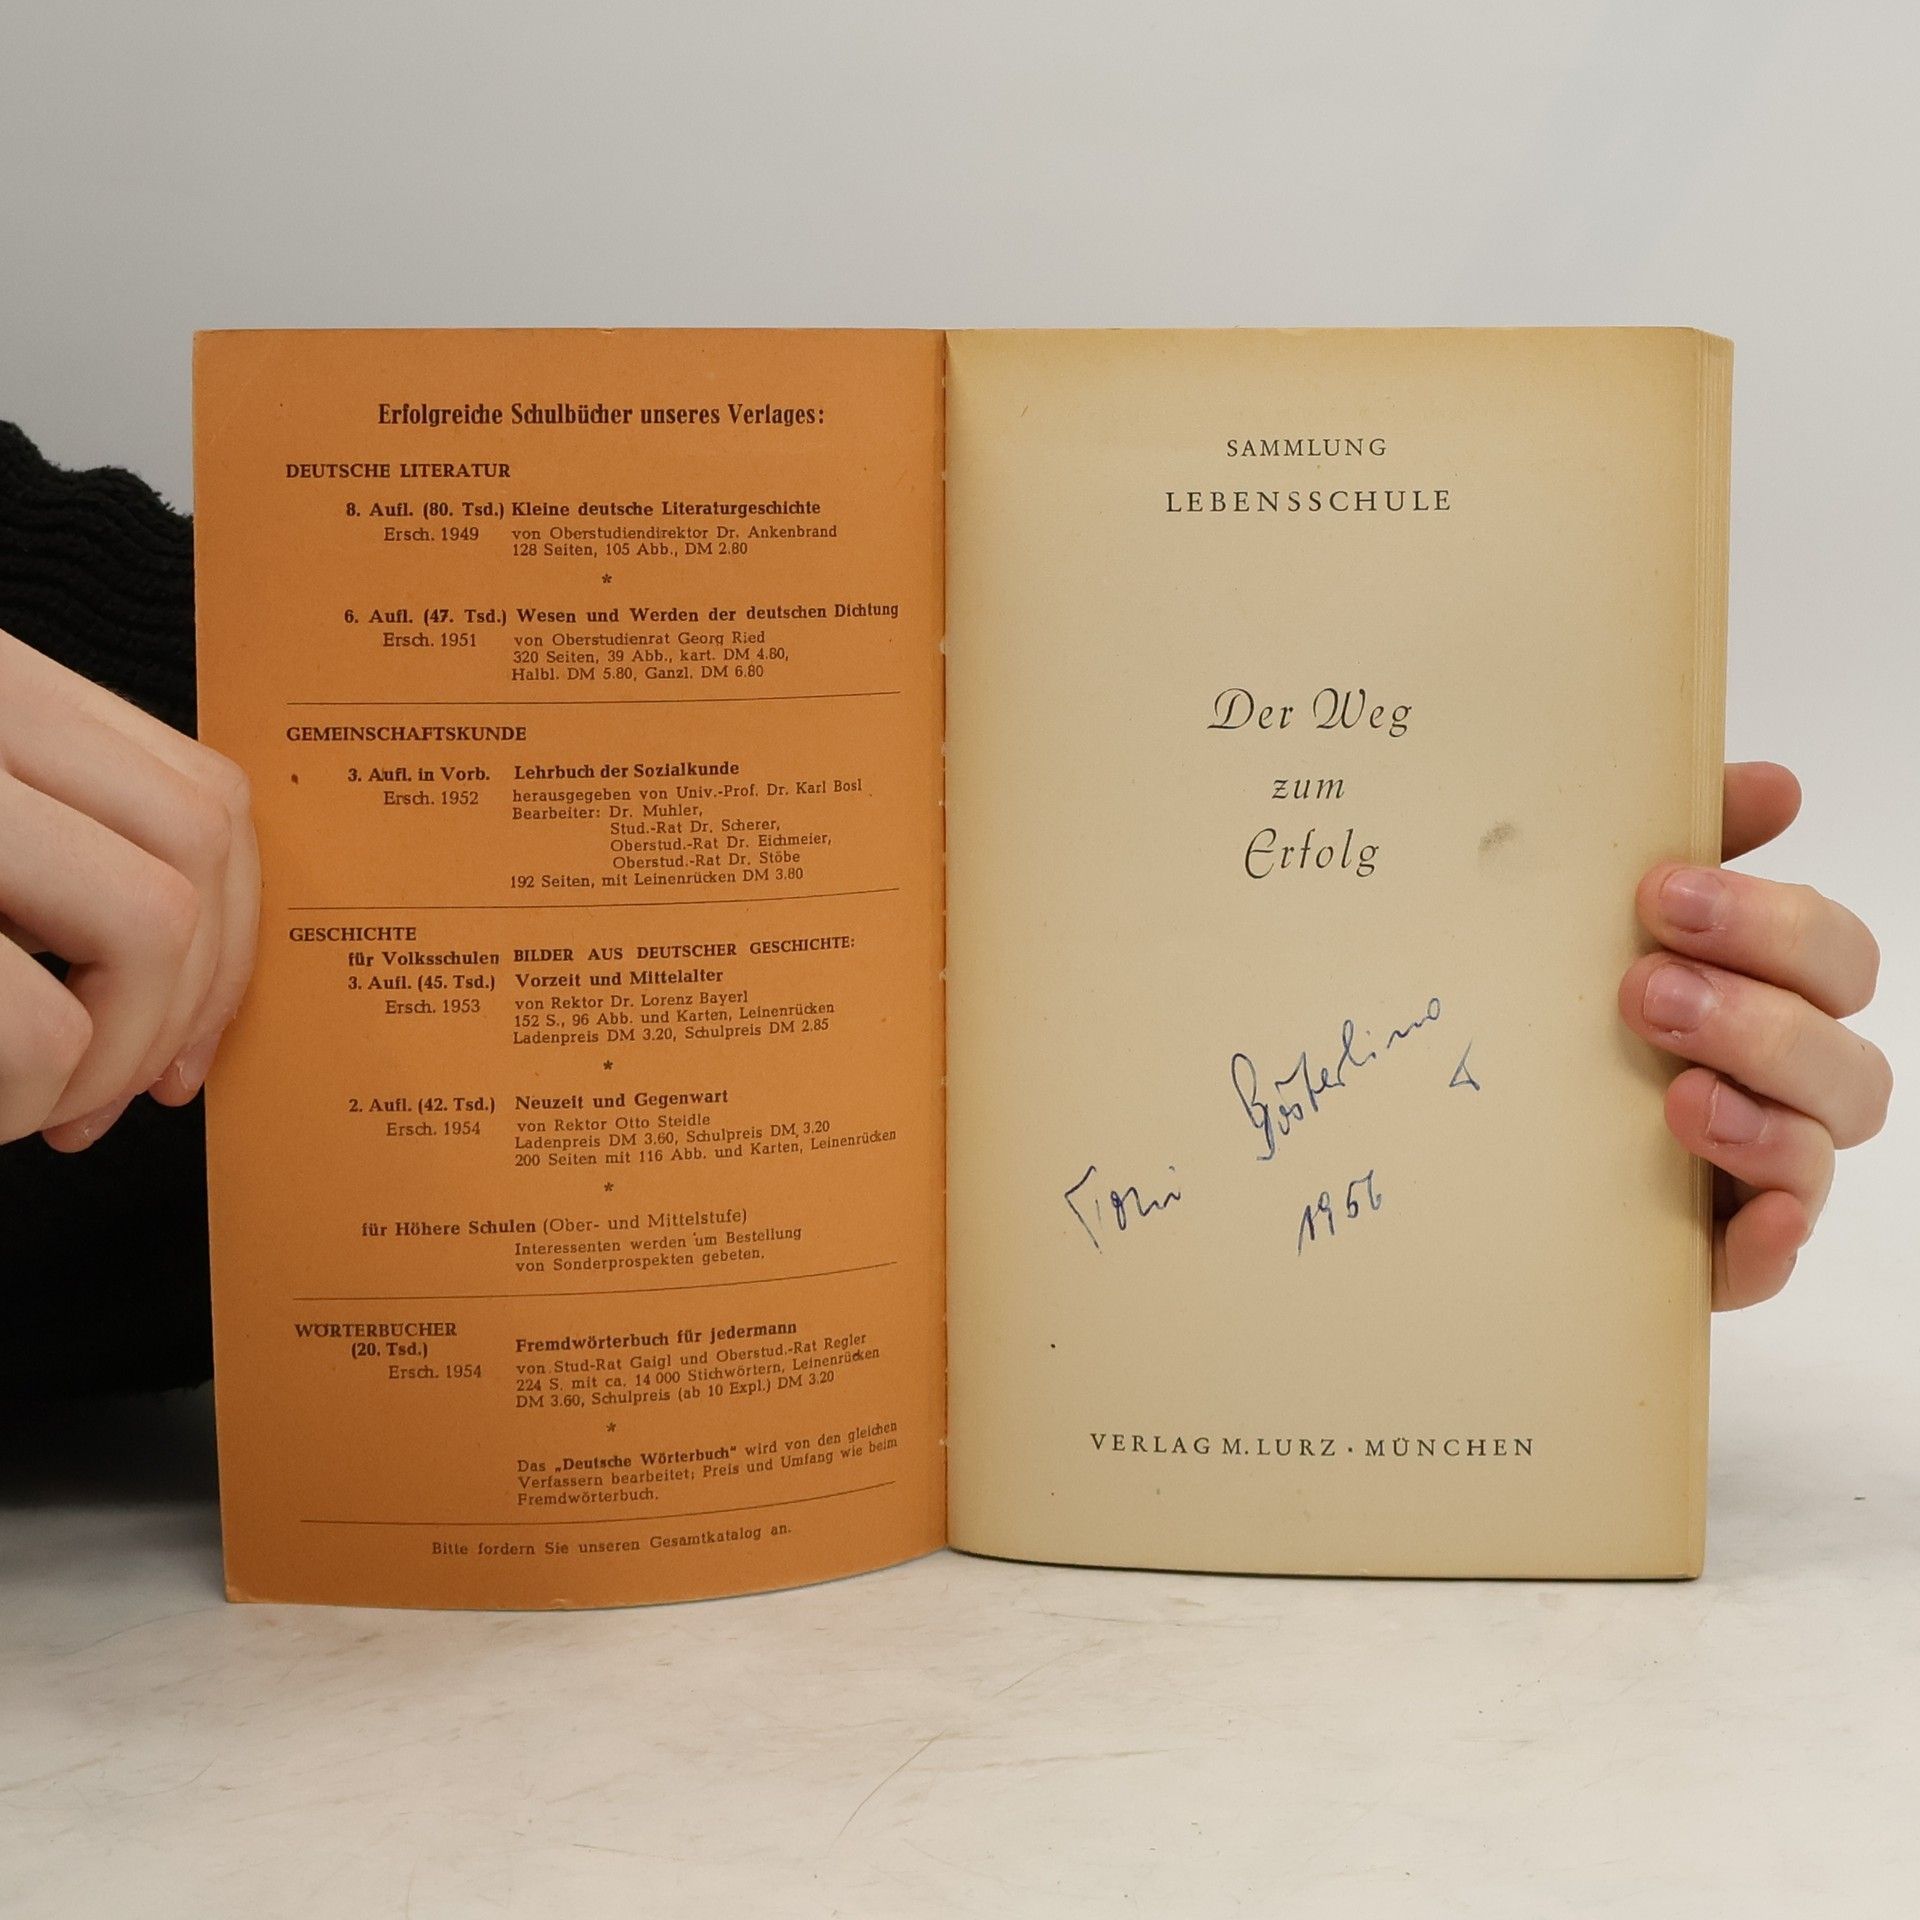 Erfolgreiche Schulbücher unseres Verlages:
DEUTSCHE LITERATUR
8. Aufl. (80. Tsd.) Kleine deutsche Literaturgeschichte
Ersch. 1949 von Oberstudiendirektor Dr. Ankenbrand
128 Seiten, 105 Abb., DM 2.80
*
6. Aufl. (47. Tsd.) Wesen und Werden der deutschen Dichtung
Ersch. 1951 von Oberstudienrat Georg Ried
320 Seiten, 39 Abb., kart. DM 4.80,
Halbl. DM 5.80, Ganzl. DM 6.80
GEMEINSCHAFTSKUNDE
3. Aufl. in Vorb. Lehrbuch der Sozialkunde
Ersch. 1952 herausgegeben von Univ.-Prof. Dr. Karl Bosl
Bearbeiter: Dr. Muhler,
Stud.-Rat Dr. Scherer,
Oberstud.-Rat Dr. Eichmeier,
Oberstud.-Rat Dr. Stöbe
192 Seiten, mit Leinenrücken DM 3.80
GESCHICHTE
für Volksschulen BILDER AUS DEUTSCHER GESCHICHTE:
3. Aufl. (45. Tsd.) Vorzeit und Mittelalter
Ersch. 1953 von Rektor Dr. Lorenz Bayerl
152 S., 96 Abb. und Karten, Leinenrücken
Ladenpreis DM 3.20, Schulpreis DM 2.85
*
2. Aufl. (42. Tsd.) Neuzeit und Gegenwart
Ersch. 1954 von Rektor Otto Steidle
Ladenpreis DM 3.60, Schulpreis DM 3.20
200 Seiten mit 116 Abb. und Karten, Leinenrücken
*
für Höhere Schulen (Ober- und Mittelstufe)
Interessenten werden um Bestellung
von Sonderprospekten gebeten.
WÖRTERBÜCHER
(20. Tsd.) Fremdwörterbuch für jedermann
Ersch. 1954 von Stud-Rat Gaigl und Oberstud.-Rat Regler
224 S. mit ca. 14 000 Stichwörtern, Leinenrücken
DM 3.60, Schulpreis (ab 10 Expl.) DM 3.20
*
Das „Deutsche Wörterbuch" wird von den gleichen
Verfassern bearbeitet; Preis und Umfang wie beim
Fremdwörterbuch.
Bitte fordern Sie unseren Gesamtkatalog an.
SAMMLUNG
LEBENSSCHULE
Der Weg
zum
Erfolg
Toni
1956
VERLAG M. LURZ · MÜNCHEN